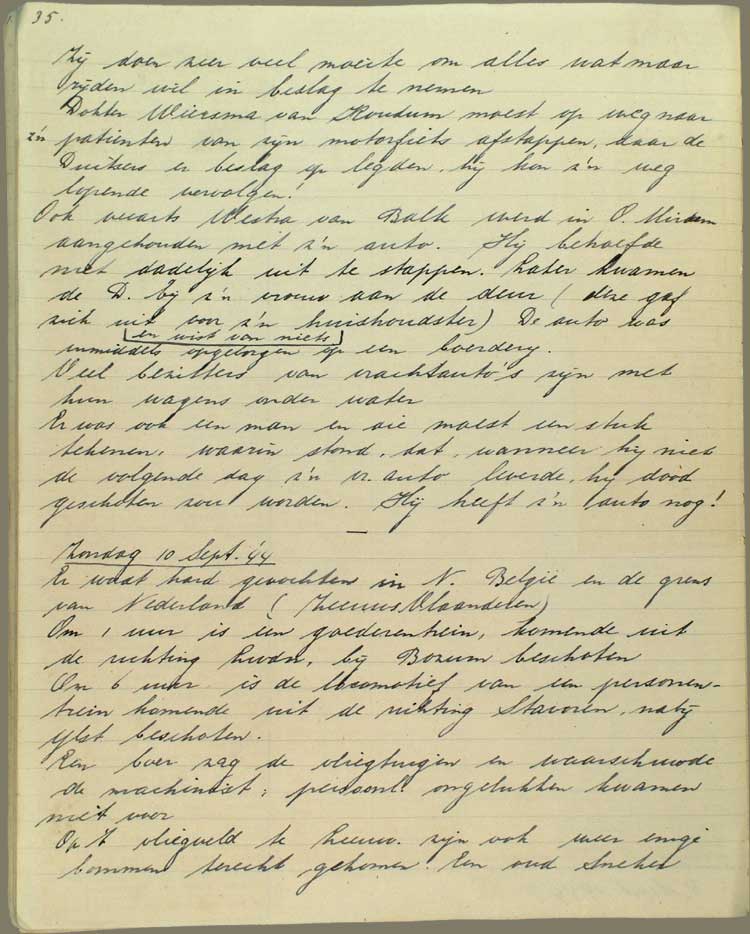 35.
Zij doen zeer veel moeite om alles wat maar
rijden wil in beslag te nemen
Dokter Wiersma van Koudum moest op weg naar
z'n patiënten van zijn motorfiets afstappen, daar de
Duitsers er beslag op legden, hij kon z'n weg
lopende vervolgen!
Ook veearts Westra van Balk werd in O. Mirdum
aangehouden met z'n auto. Hij behoefde
niet dadelijk uit te stappen. Later kwamen
de D. bij z'n vrouw aan de deur (deze gaf
zich uit voor z'n huishoudster) De auto was
(en wist van niets)
inmiddels opgeborgen op een boerderij.
Veel bezitters van vrachtauto's zijn met
hun wagens onder water
Er was ook een man en die moest een stuk
tekenen, waarin stond, dat, wanneer hij niet
de volgende dag z'n vr. auto leverde, hij dood
geschoten zou worden. Hij heeft z'n auto nog!
Zondag 10 Sept. '44
Er wodt hard gevochten in N. België en de grens
van Nederland (Zeeuws Vlaanderen)
Om 1 uur is een goederentrein, komende uit
de richting Lwdn, bij Bozum beschoten
Om 6 uur is de locomotief van een personen-
trein komende uit de richting Stavoren, nabij
IJlst beschoten.
Een boer zag de vliegtuigen en waarschuwde
de machinist; persoonl. ongelukken kwamen
niet voor
Op 't vliegveld te Leeuw. zijn ook weer enige
bommen terecht gekomen. Een oud Sneker